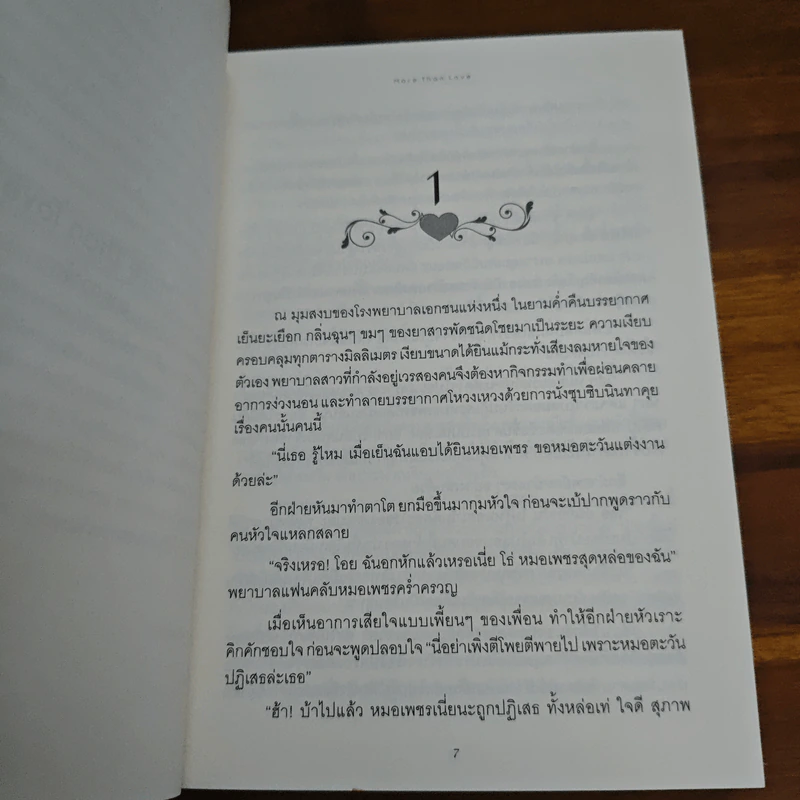 More Than Love
1
ณ มุมสงบของโรงพยาบาลเอกชนแห่งหนึ่ง ในยามค่ำคืนบรรยากาศ
เย็นยะเยือก กลิ่นฉุนๆ ขมๆ ของยาสารพัดชนิดโชยมาเป็นระยะ ความเงียบ
ครอบคลุมทุกตารางมิลลิเมตร เงียบขนาดได้ยินแม้กระทั่งเสียงลมหายใจของ
ตัวเอง พยาบาลสาวที่กำลังอยู่เวรสองคนจึงต้องหากิจกรรมทำเพื่อผ่อนคลาย
อาการง่วงนอน และทำลายบรรยากาศโหวงเหวงด้วยการนั่งซุบซิบนินทาคุย
เรื่องคนนั้นคนนี้
“นี่เธอ รู้ไหม เมื่อเย็นฉันแอบได้ยินหมอเพชร ขอหมอตะวันแต่งงาน
ด้วยล่ะ”
อีกฝ่ายหันมาทำตาโต ยกมือขึ้นมากุมหัวใจ ก่อนจะเบ้ปากพูดราวกับ
คนหัวใจแหลกสลาย
“จริงเหรอ! โอย ฉันอกหักแล้วเหรอเนี่ย โธ่ หมอเพชรสุดหล่อของฉัน”
พยาบาลแฟนคลับหมอเพชรคร่ำครวญ
เมื่อเห็นอาการเสียใจแบบเพี้ยนๆ ของเพื่อน ทำให้อีกฝ่ายหัวเราะ
คิกคักชอบใจ ก่อนจะพูดปลอบใจ “นี่อย่าเพิ่งตีโพยตีพายไป เพราะหมอตะวัน
ปฏิเสธล่ะเธอ”
“ฮ้า! บ้าไปแล้ว หมอเพชรเนี่ยนะถูกปฏิเสธ ทั้งหล่อเท่ ใจดี สุภาพ
7